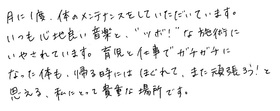 月に1度、体のメンテナンスをしていただいています。
いつも心地良い音楽と、"ツボ!"な施術に
いやされています。育児と仕事でガチガチに
なった体も、帰る時にはほぐれて、また頑張ろう!と
思える、私にとって貴重な場所です。